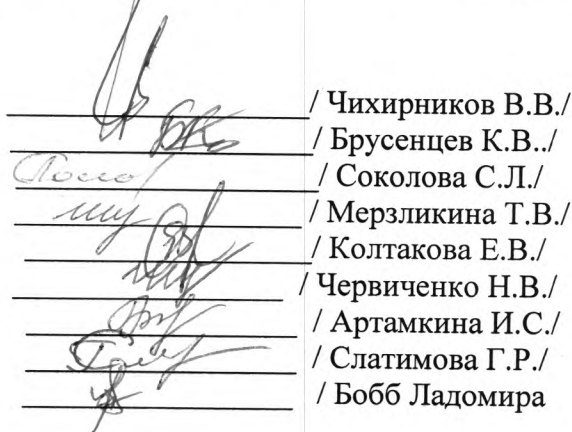 / Чихирников В.В./
/ Брусенцев К.В../
/ Соколова С.Л./
/ Мерзликина Т.В./
/ Колтакова Е.В./
/ Червиченко Н.В./
/ Артамкина И.С./
/ Слатимова Г.Р./
/ Бобб Ладомира